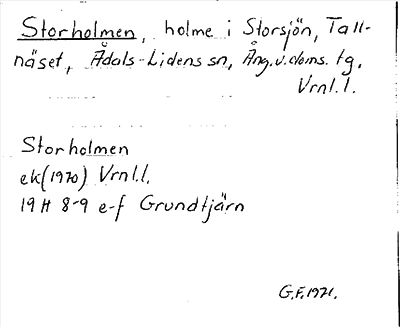 Storholmen, holme i Storsjön, Tall-
näset, Ådals-Lidens sn, Ång.v.doms. tg,
Vrnl.l.
Storholmen
ek(1970) Vrnl.l.
19 H 8-9 e-f Grundtjärn
G.F.1971.